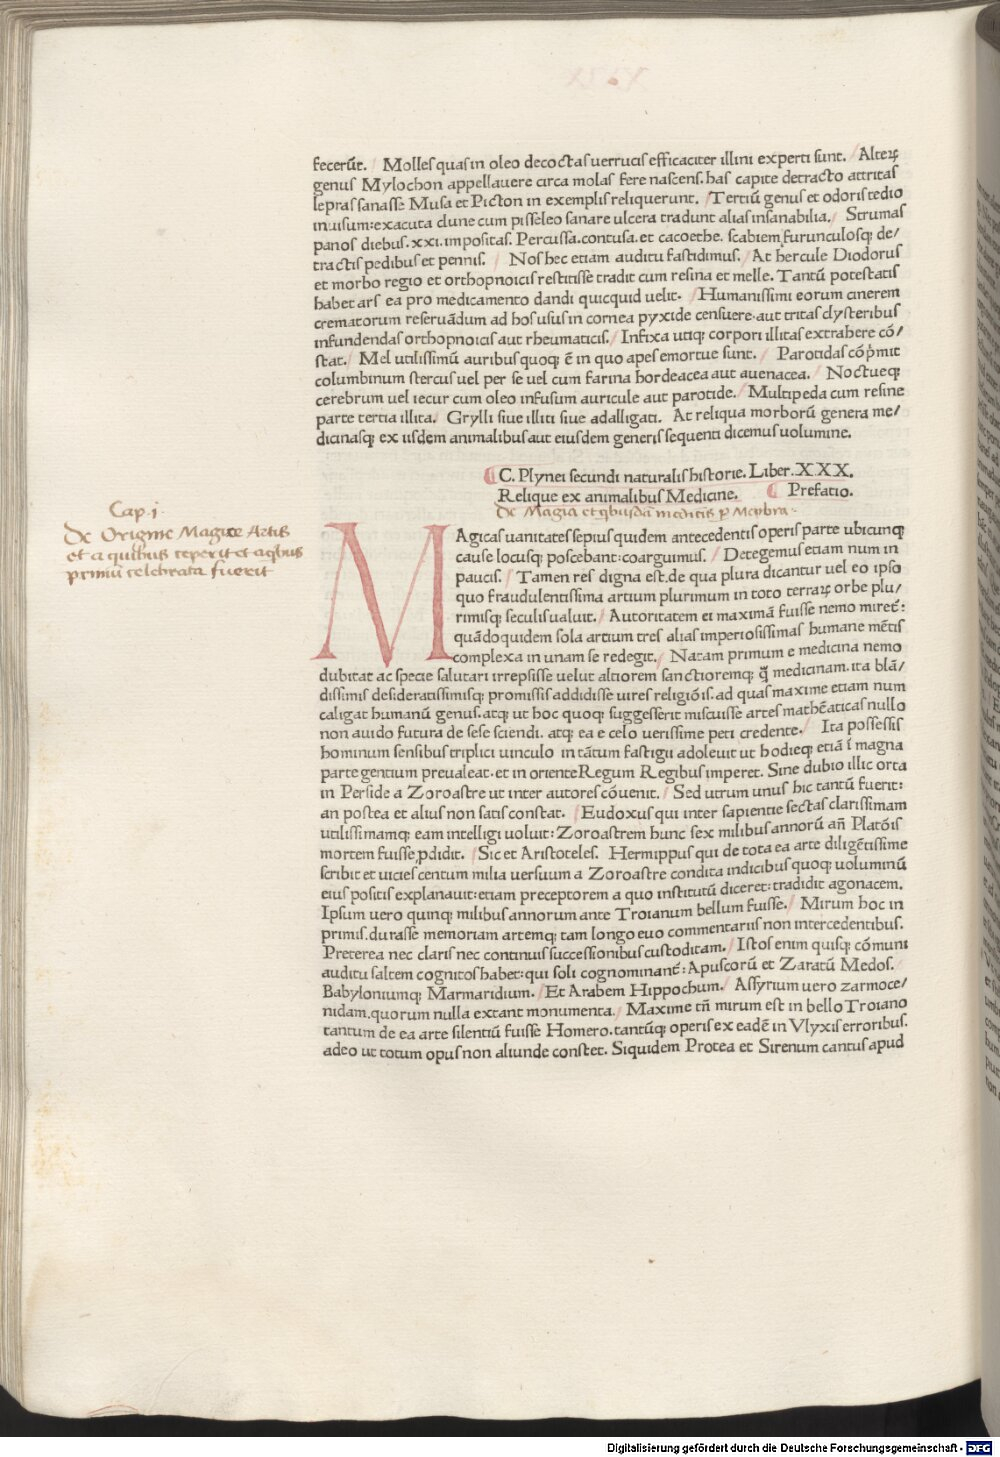 fecerūt. Molles quas in oleo decoctas uerrucis efficaciter illini experti sunt. Alterꝝ
genus Mylochon appellauere circa molas fere nascens. has capite detracto attritas
lepras sanasse Musa et Picton in exemplis reliquerunt. Tertiū genus et odoris tedio
inuisum: exacuta clune cum pisseleo sanare ulcera tradunt alias insanabilia. Strumas
panos diebus. xxi. impositas. Percussa. contusa. et cacoethe. scabiem furunculosqꝫ de/
tractis pedibus et pennis. Nos hec etiam auditu fastidimus. At hercule Diodorus
et morbo regio et orthopnoicis restitisse tradit cum resina et melle. Tantū potestatis
habet ars ea pro medicamento dandi quicquid uelit. Humanissimi eorum cinerem
crematorum reseruādum ad hos usus in cornea pyxide censuere. aut tritas clysteribus
infundendas orthopnoicis aut rheumaticis. Infixa utiqꝫ corpori illitas extrahere cō/
stat. Mel utilissimū auribus quoqꝫ ē in quo apes emortue sunt. Parotidas cōp̄mit
columbinum stercus uel per se uel cum farina hordeacea aut auenacea. Noctueqꝫ
cerebrum uel iecur cum oleo infusum auricule aut parotide. Multipeda cum resine
parte tertia illita. Grylli siue illiti siue adalligati. At reliqua morborū genera me/
dicinasqꝫ ex iisdem animalibus aut eiusdem generis sequenti dicemus uolumine.
C. Plynei secundi naturalis historie. Liber. XXX.
Relique ex animalibus Medicine. Prefatio.
De Magia et qbusdā medicis p Membra.
Cap. j.
De Origine Magice Artis
et a quibus ceperit et aqbus
primū celebrata fuerit
MAgicas uanitates sepius quidem antecedentis operis parte ubicunqꝫ
cause locusqꝫ poscebant: coarguimus. Detegemus etiam num in
paucis. Tamen res digna est. de qua plura dicantur uel eo ipso
quo fraudulentissima artium plurimum in toto terrarꝝ orbe plu/
rimisqꝫ seculis ualuit. Autoritatem ei maximā fuisse nemo miret̄:
quādoquidem sola artium tres alias imperiosissimas humane mētis
complexa in unam se redegit. Natam primum e medicina nemo
dubitat ac specie salutari irrepsisse uelut altiorem sanctioremqꝫ q̄ꝫ medicinam. ita blā/
dissimis desideratissimisqꝫ promissis addidisse uires religiōis. ad quas maxime etiam num
caligat humanū genus. atqꝫ ut hoc quoqꝫ suggesserit miscuisse artes mathēaticas nullo
non auido futura de sese sciendi. atqꝫ ea e celo uerissime peti credente. Ita possessis
hominum sensibus triplici uinculo in tātum fastigii adoleuit ut hodieqꝫ etiā ī magna
parte gentium preualeat. et in oriente Regum Regibus imperet. Sine dubio illic orta
in Perside a Zoroastre ut inter autores cōuenit. Sed utrum unus hic tantū fuerit:
an postea et alius non satis constat. Eudoxus qui inter sapientie sectas clarissimam
utilissimamqꝫ eam intelligi uoluit: Zoroastrem hunc sex milibus annorū añ Platōis
mortem fuisse ꝓdidit. Sic et Aristoteles. Hermippus qui de tota ea arte diligētissime
scribit et uicies centum milia uersuum a Zoroastre condita indicibus quoqꝫ uoluminū
eius positis explanauit: etiam preceptorem a quo institutū diceret: tradidit agonacem.
Ipsum uero quinqꝫ milibus annorum ante Troianum bellum fuisse. Mirum hoc in
primis. durasse memoriam artemqꝫ tam longo euo commentariis non intercedentibus.
Preterea nec claris nec continuis successionibus custoditam. Istos enim quisqꝫ cōmuni
auditu saltem cognitos habet: qui soli cognominant̄: Apuscorū et Zaratū Medos.
Babyloniumqꝫ Marmaridium. Et Arabem Hippochum. Assyrium uero zarmoce/
nidam. quorum nulla extant monumenta. Maxime tñ mirum est in bello Troiano
tantum de ea arte silentiū fuisse Homero. tantūqꝫ operis ex eadē in Vlyxis erroribus.
adeo ut totum opus non aliunde constet. Siquidem Protea et Sirenum cantus apud
Digitalisierung gefördert durch die Deutsche Forschungsgemeinschaft - DFG